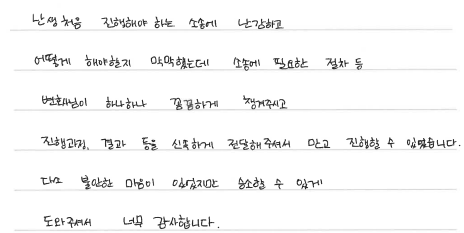 난생처음 진행해야 하는 소송에 난감하고
어떻게 해야할지 막막했는데 소송에 필요한 절차 등
변호사님이 하나하나 꼼꼼하게 챙겨주시고
진행과정, 결과 등을 신속하게 전달해주셔서 믿고 진행할 수 있었습니다.
다소 불안한 마음이 있었지만 승소할 수 있게
도와주셔서 너무 감사합니다.